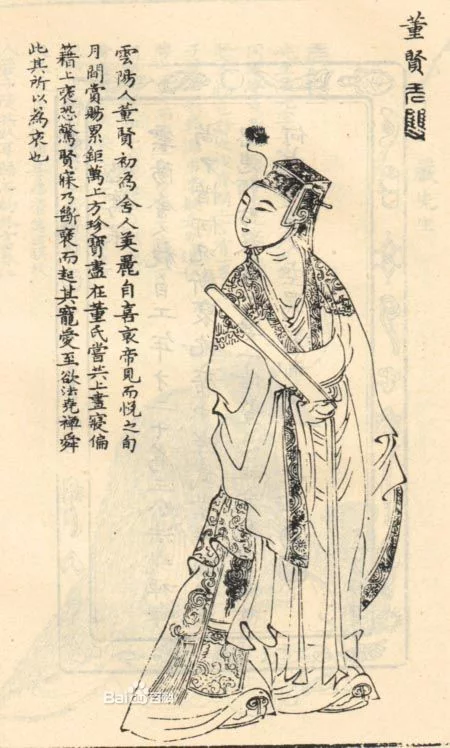 董賢
雲陽人董賢初為舍人美麗自喜哀帝見而悅之旬
月間賞賜累鉅萬上方珍寶盡在董氏嘗共上晝寢偏
籍上褎恐驚賢寐乃斷褎而起其寵愛至欲法堯禪舜
此其所以為哀也
Bai百科